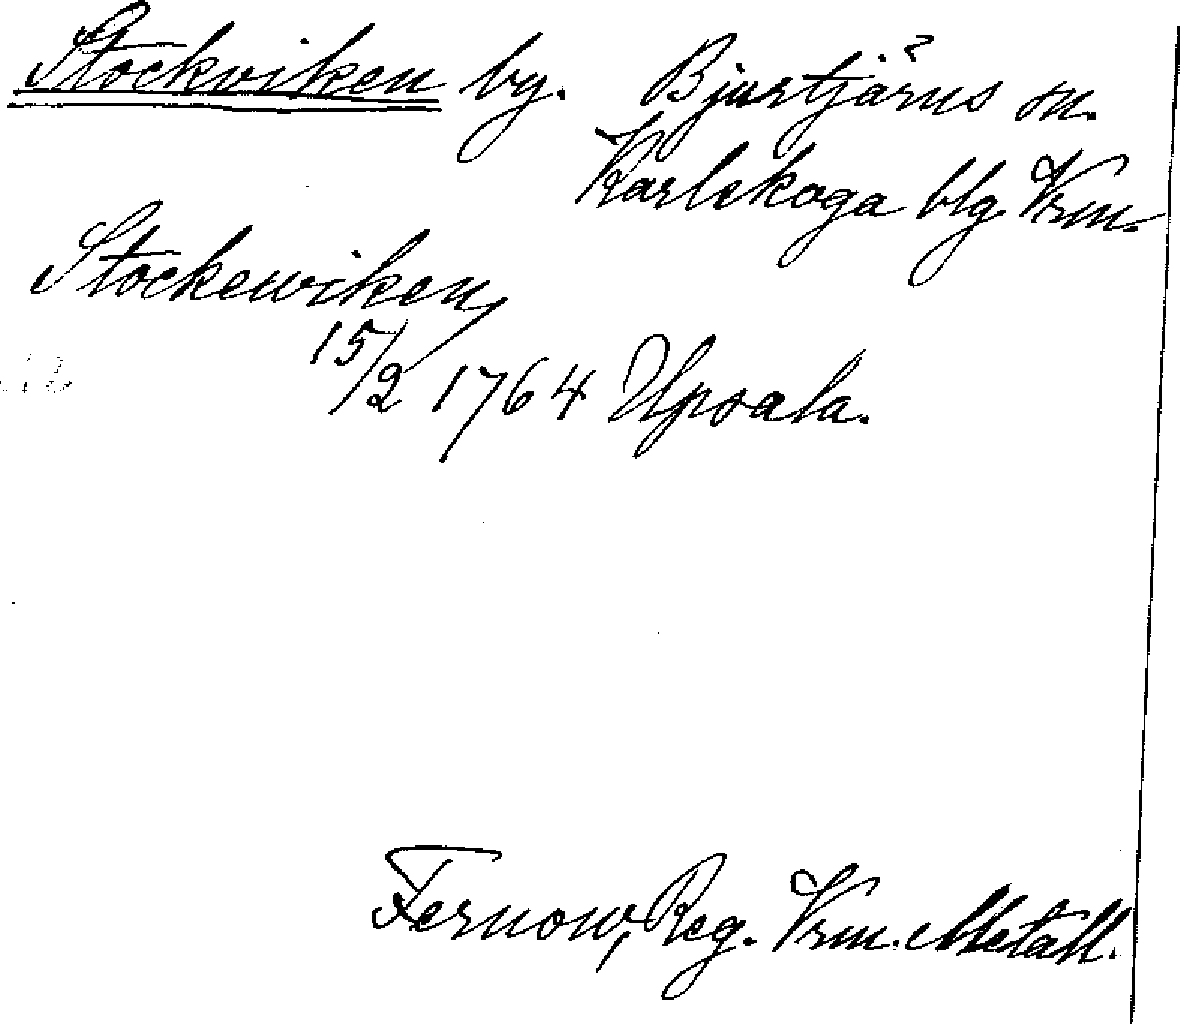 Stockviken by. Bjurtjärns sn.
Karlskoga blg Vrm.
Stockewiken,
15/2 1764 Upsala.
Fernow, Reg. Vrm. Metall.